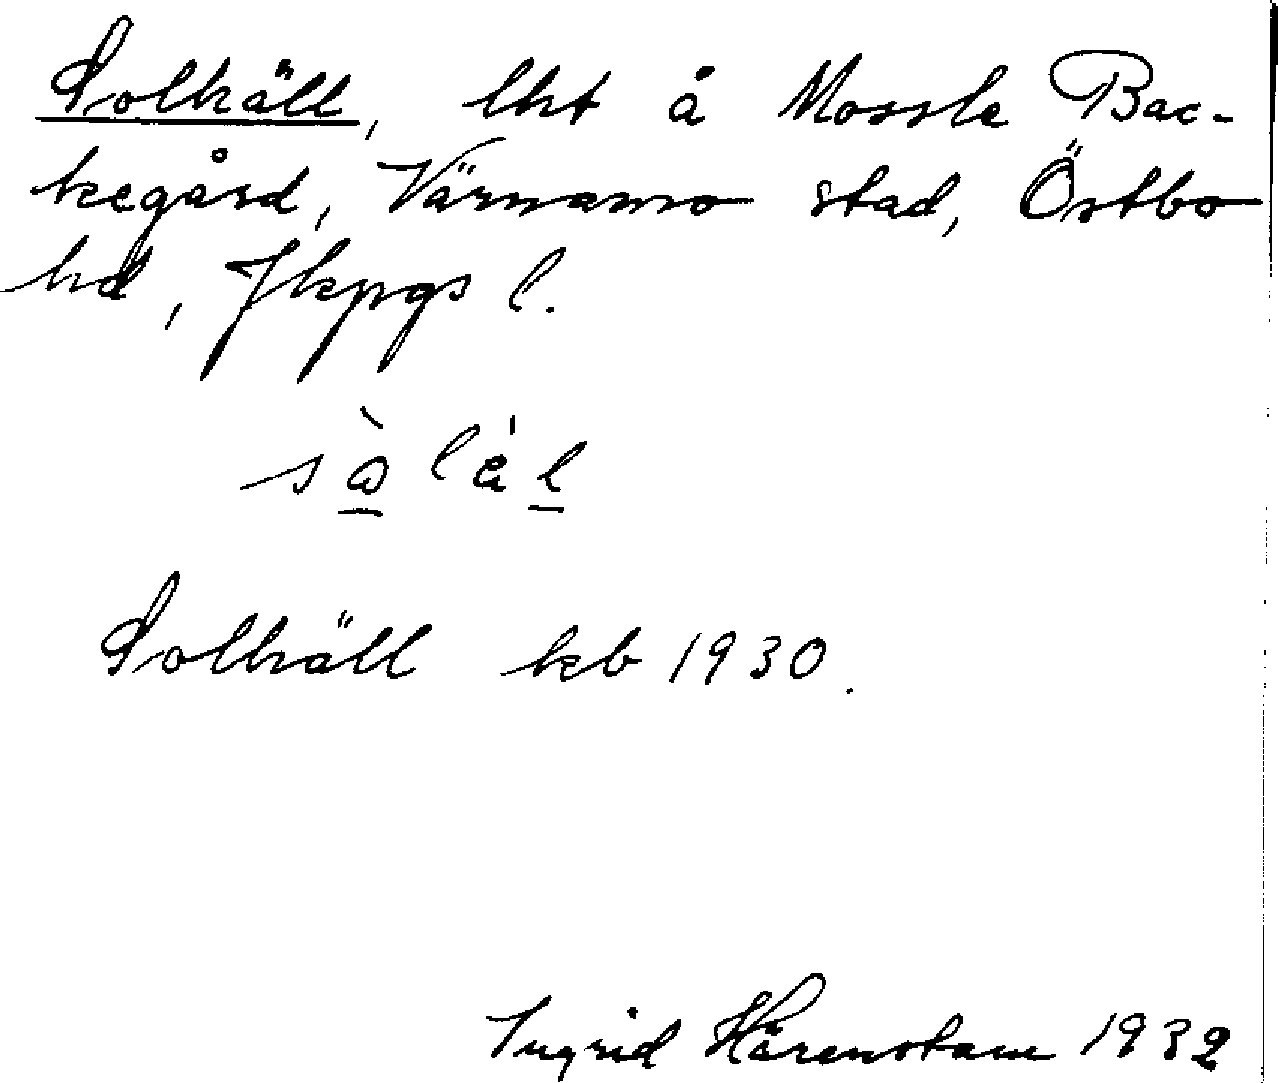 Solhäll, lht å Mossle Bac-
kegård, Värnamo stad, Östbo
hd, Jkpgs l.
Solhäll kb 1930.
Ingrid Härenstam 1932